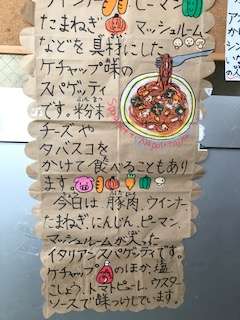 ウインナー ピーマン
たまねぎ マッシュルーム
などを具材にした
ケチャップ味の
スパゲッティ
です。粉末
ふんまつ
チーズや
タバスコを
かけて食べることもあり
ます。
今日は、豚肉、ウインナー
たまねぎ、にんじん、ピーマン、
マッシュルームが入った
イタリアンスパゲッティです。
ケチャップのほか、塩、
こしょう、トマトピューレ、ウスター
ソースで味つけしています。